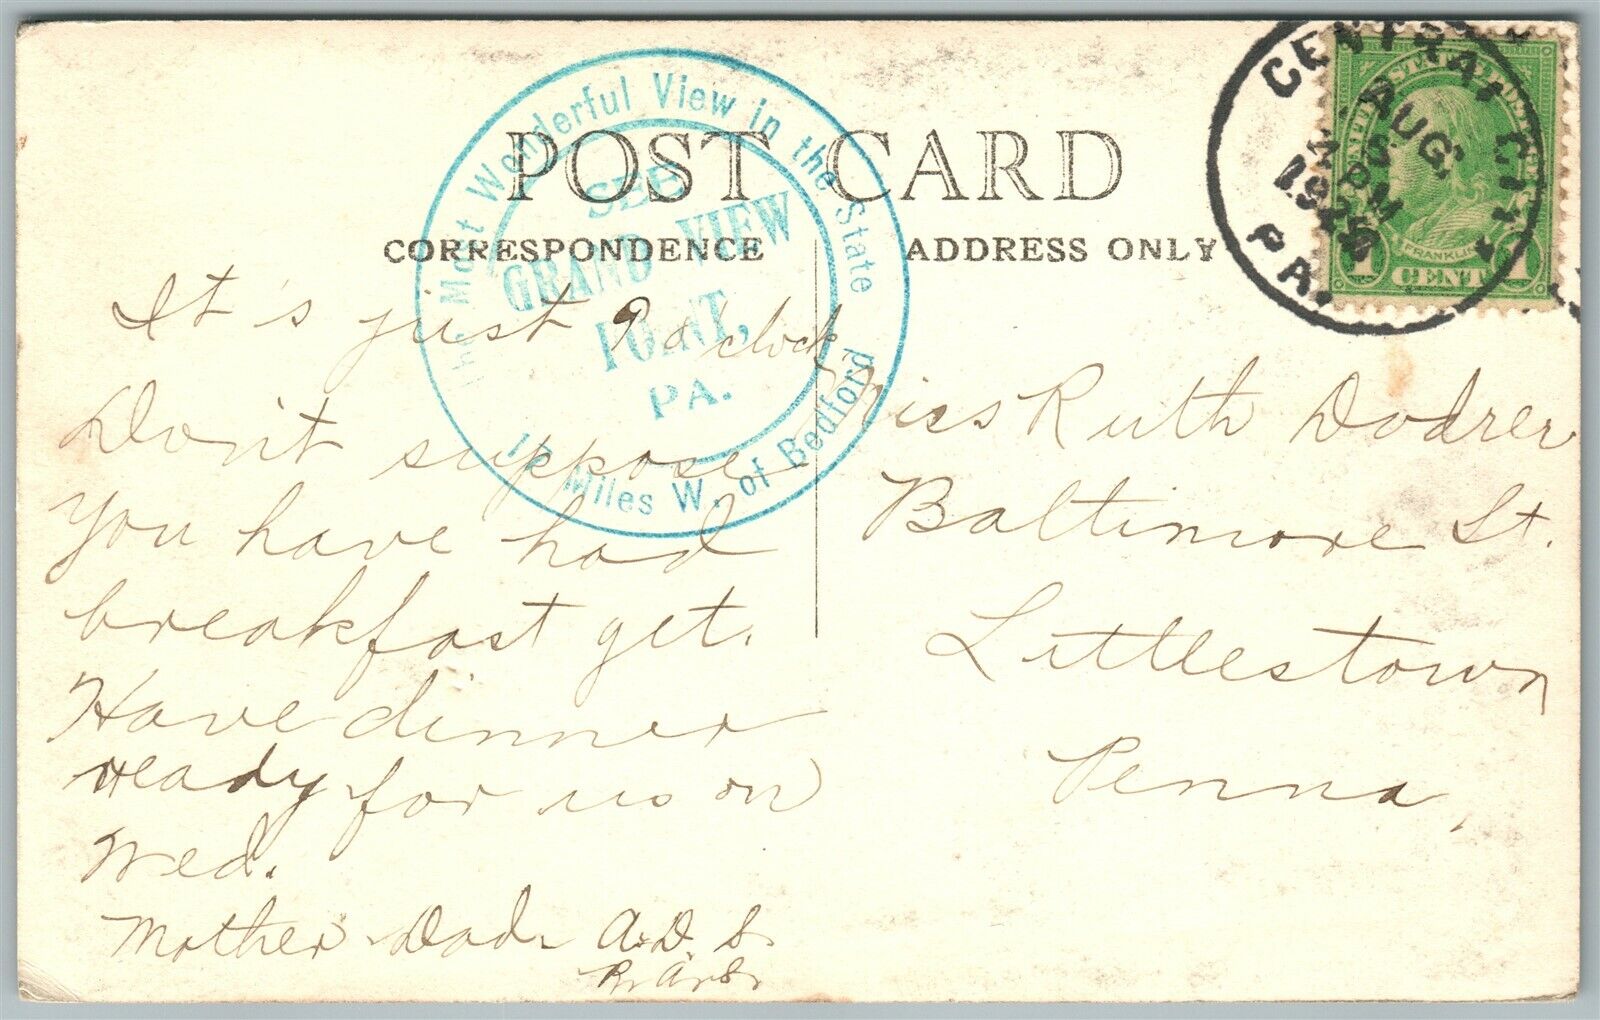 POST CARD
CORRESPONDENCE
ADDRESS ONLY
The Most Wonderful View in the State
SEE
GRAND VIEW
POINT,
PA.
Miles W. of Bedford
CENTRAL CITY
PA.
AUG.
5
PM
U.S. POSTAGE
FRANKLIN
1 CENT 1
It's just 9 o'clock
Don't suppose
you have had
breakfast yet.
Have dinner
ready for us on
Wed.
Mother Dad A.D.S.
Miss Ruth Dodrer
Baltimore St.
Littlestown
Penna,